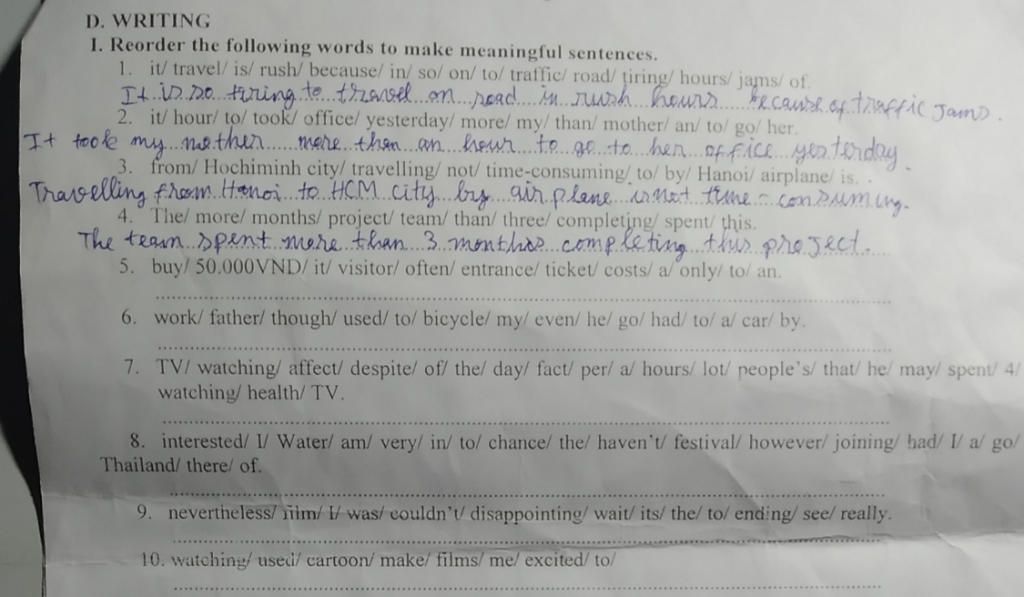 D. WRITING
I. Reorder the following words to make meaningful sentences.
1. it/ travel/ is/ rush/ because/ in/ so/ on/ to/ traffic/ road/ tiring/ hours/ jams/ of.
It is so tiring to travel on road in rush hours because of traffic jams.
2. it/ hour/ to/ took/ office/ yesterday/ more/ my/ than/ mother/ an/ to/ go/ her.
It took my mother more than an hour to go to her office yesterday.
3. from/ Hochiminh city/ travelling/ not/ time-consuming/ to/ by/ Hanoi/ airplane/ is.
Travelling from Hanoi to HCM city by airplane is not time-consuming.
4. The/ more/ months/ project/ team/ than/ three/ completing/ spent/ this.
The team spent more than 3 months completing this project.
5. buy/ 50.000VND/ it/ visitor/ often/ entrance/ ticket/ costs/ a/ only/ to/ an.
6. work/ father/ though/ used/ to/ bicycle/ my/ even/ he/ go/ had/ to/ a/ car/ by.
7. TV/ watching/ affect/ despite/ of/ the/ day/ fact/ per/ a/ hours/ lot/ people's/ that/ he/ may/ spent/ 4/
watching/ health/ TV.
8. interested/ I/ Water/ am/ very/ in/ to/ chance/ the/ haven't/ festival/ however/ joining/ had/ I/ a/ go/
Thailand/ there/ of.
9. nevertheless/ film/ I/ was/ couldn't/ disappointing/ wait/ its/ the/ to/ ending/ see/ really.
10. watching/ used/ cartoon/ make/ films/ me/ excited/ to/